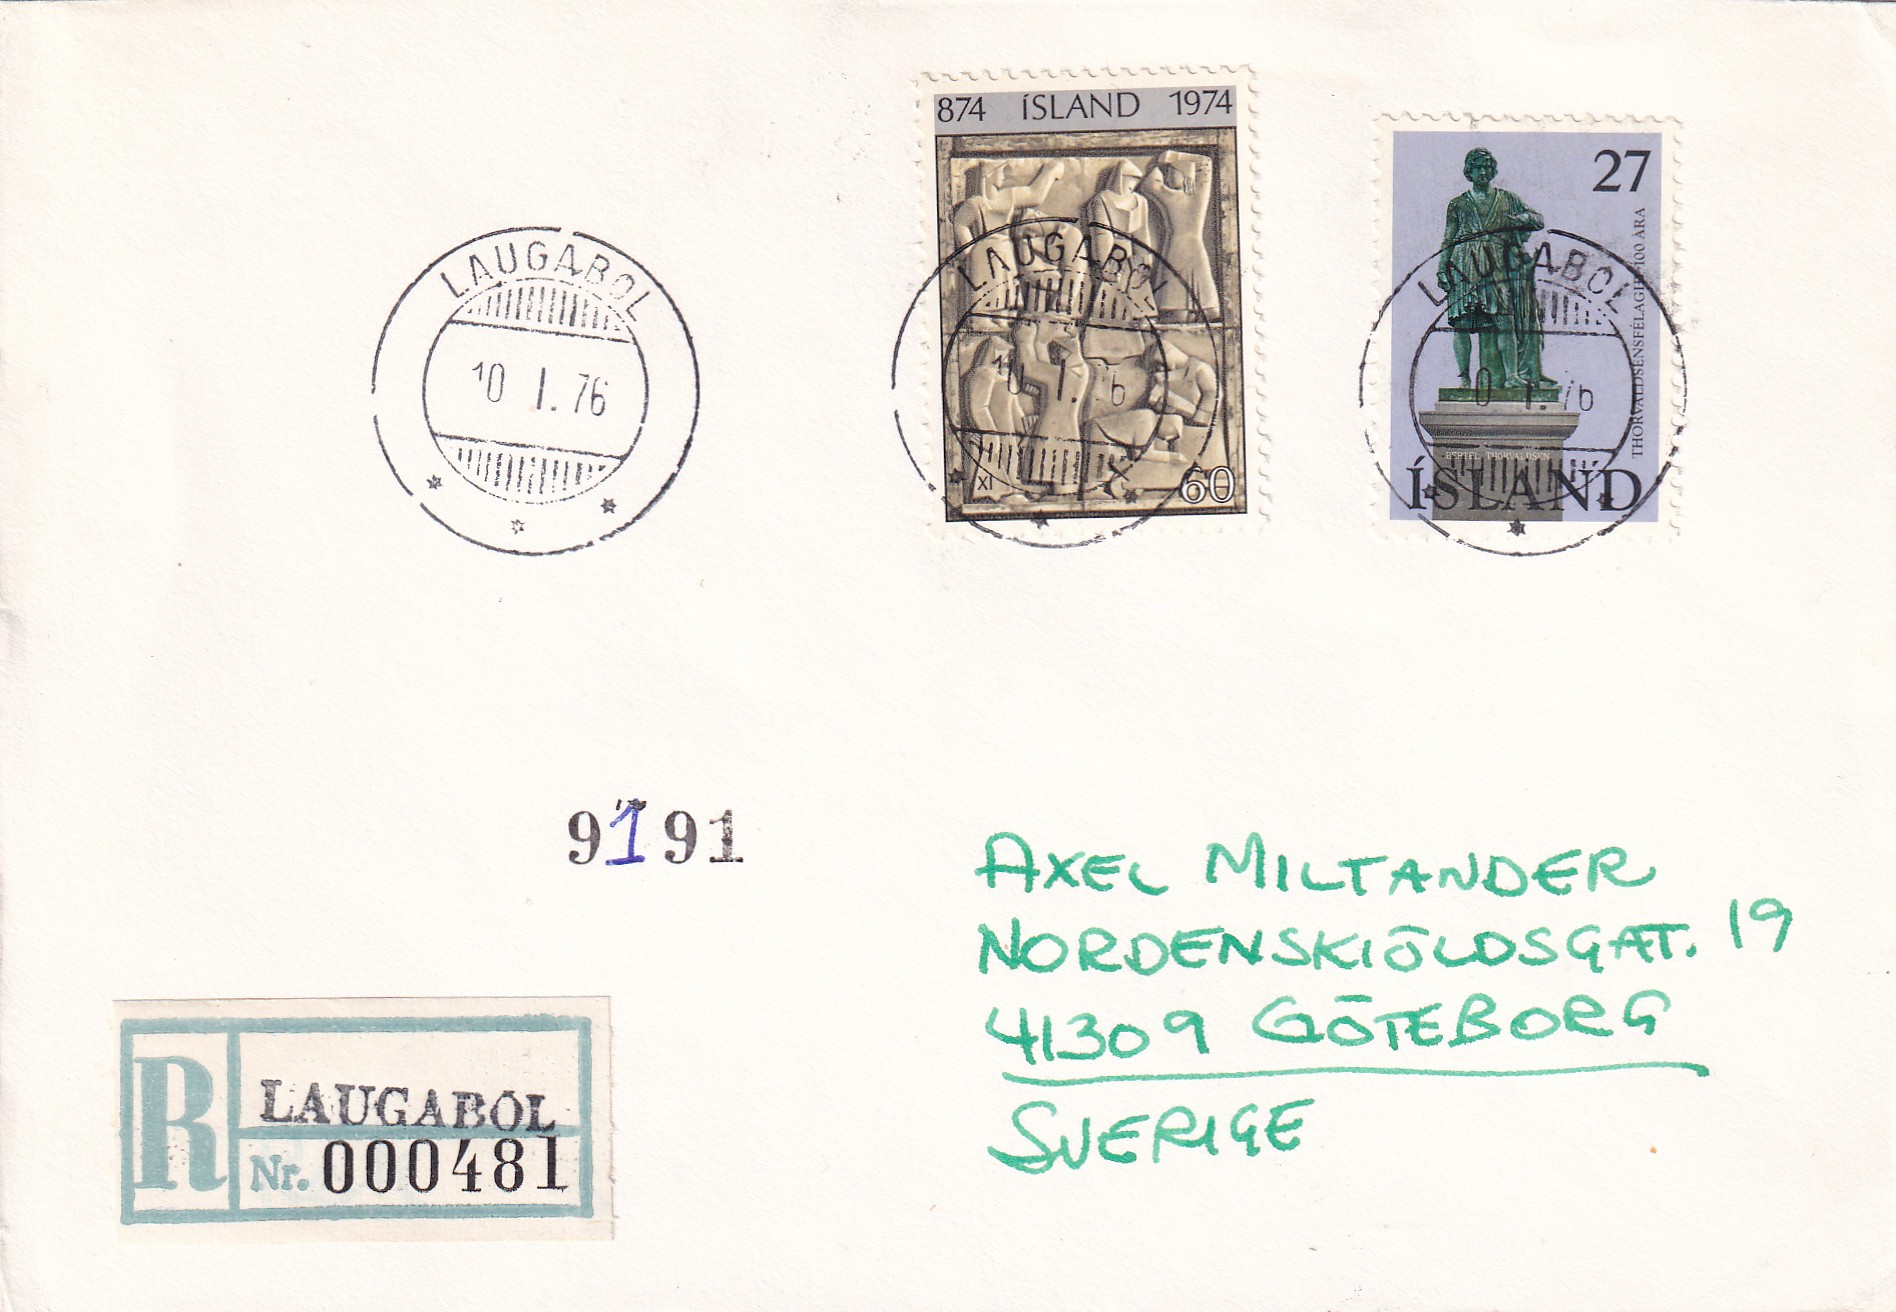 874 ÍSLAND 1974
XI
60
27
THORVALDSENSFÉLAGIÐ 100 ÁRA
BERTEL THORVALDSEN
ÍSLAND
LAUGABÓL
10 1. 76
LAUGABÓL
10 1. 6
LAUGABÓL
0 1. 76
9191
AXEL MILTANDER
NORDENSKIÖLDSGAT. 19
41309 GÖTEBORG
SVERIGE
R
LAUGABÓL
Nr. 000481